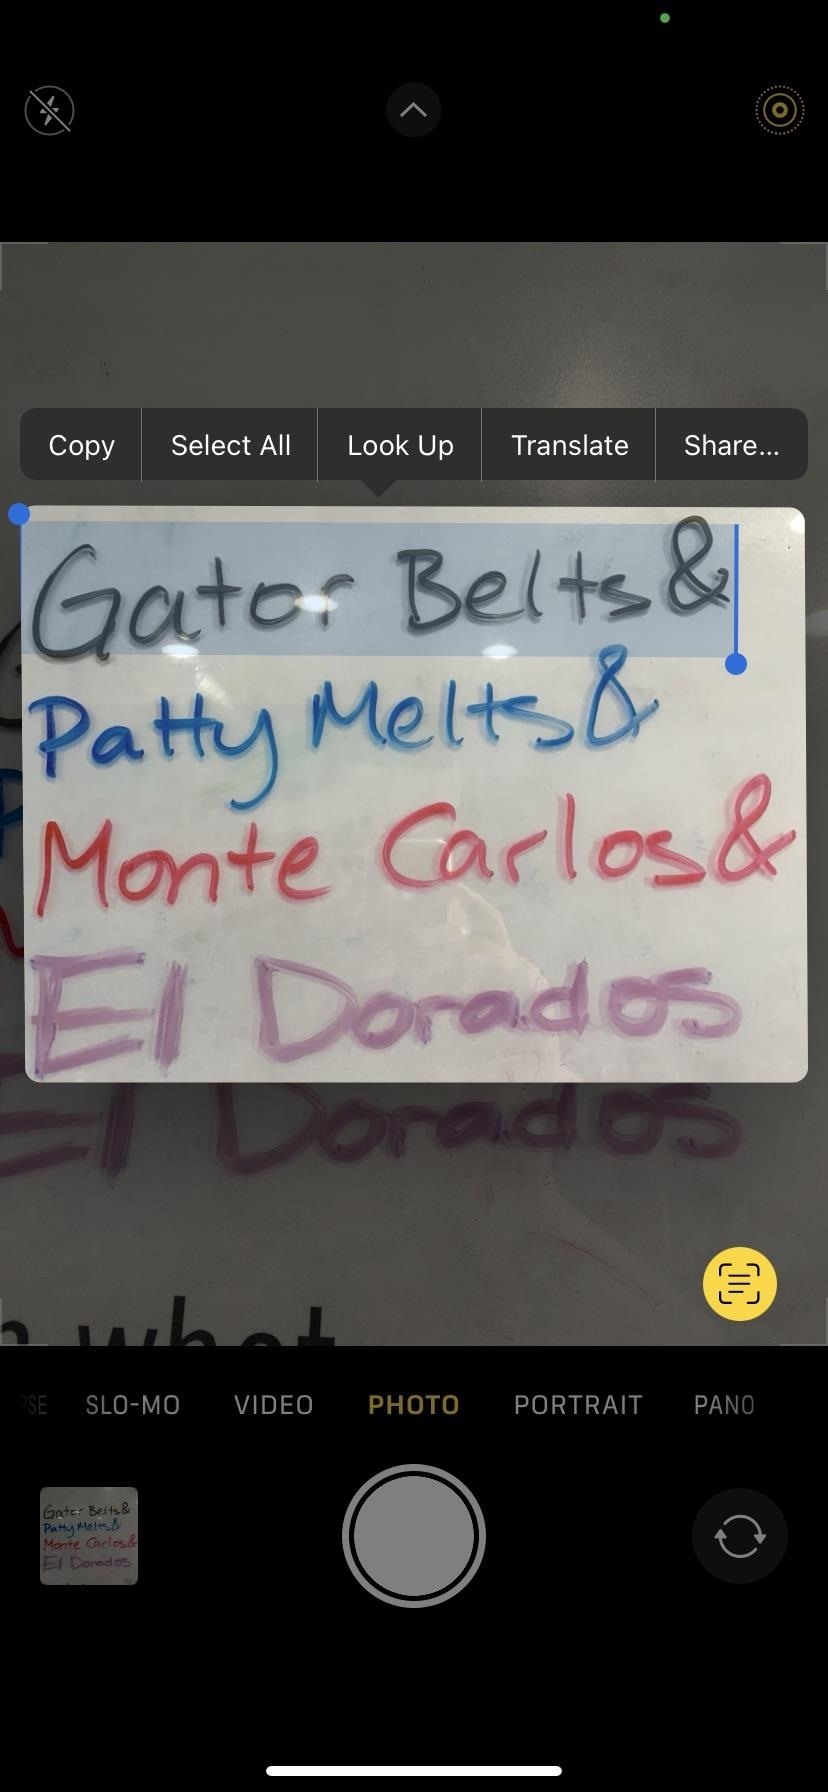 Copy Select All Look Up Translate Share...
Gator Belts &
Patty Melts &
Monte Carlos &
El Dorados
El Dorados
what
SLO-MO VIDEO PHOTO PORTRAIT PANO
Gator Belts &
Patty Melts &
Monte Carlos &
El Dorados